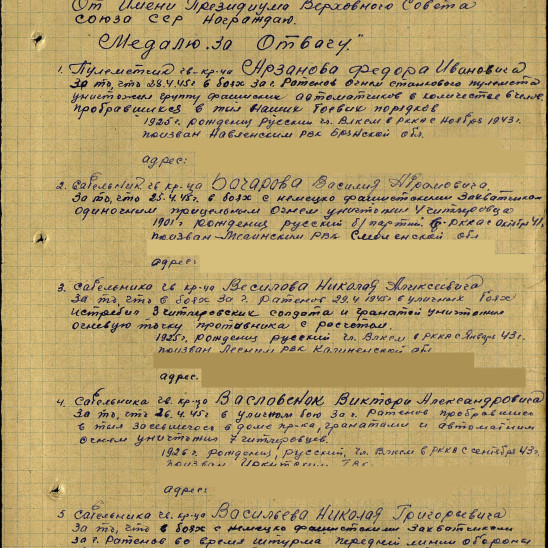 От Имени Президиума Верховного Совета
Союза ССР Награждаю.
"Медалю. За Отвагу"
1. Пулеметчик гв. кр-ца Арзанова Федора Ивановича
За то, что 28.4.45г в боях за г. Ратенов огнем станкового пулемета
уничтожил группу фашиских автоматчиков в количестве 8 челов.
пробравшихся в тил наших боевых порядков
1925г. рождениц русский чл. Влксм в РККА с Ноября 1943г.
призван Навленским РВК Брянской обл.
адрес:
2. Сабельник гв кр-ца Бочарова Василия Абрамовича.
За то, что 25.4.45г. в боях с немецко фашистскими Захватчиком
одиночным прицельным огнем уничтожил 4 гитлеровца
1901г рождениц русский б/партий, в РККА с октябр 41,
призван РВК Смоленской обл
адрес:
3. Сабельника гв. кр-ца Веселова Николая Аликсивича
За то, что в боях за г. Ратенов 29.4 1945г в уличных боях
истребил 3 гитлеровских солдата и гранатой уничтожил
огневую точку противника с расчетом.
1925г. рождениц русский чл. Влксм в РККА с Января 43г.
призван Лесним РВК Калиненской обл
адрес.
4. Сабельника гв. кр-ца Васловенок Виктора Александровича
За то, что 26.4.45г в уличном бою за г. Ратенов пробравшись
в тил засевшегося в доме пр-ка, гранатами и автоматним
огнем уничтожил 7 гитлеровцев.
1926г. рождениц, русский, чл. Влксм в РККА с сентября 43г.
призван
адрес:
5 Сабельника гв. кр-ца Васильева Николая Григорьевича
За то, что в боях с немецко фашистскими Захватчиком
За г. Ратенов во время штурма передней линии обороны